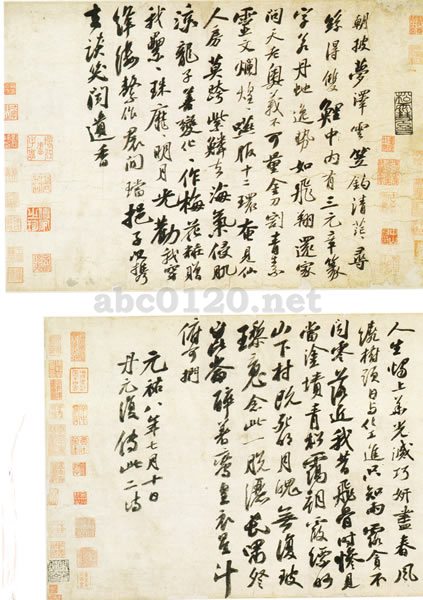 朝披夢澤雲笠釣清茫々尋
絲得雙鯉中内有三元章篆
字若丹蛇逸勢如飛翔還家
問天老奥義不可量金刀割青素
靈文爛煌々嚥服十二環奄見仙
人房莫跨紫鱗去海氣侵肌
涼龍子善變化々作梅花粧贈
我纍々珠靡々明月光勸我穿
絳縷繫作裙間璫挹子以攜
去談笑聞遺香
abc0120.net
人生燭上華光滅巧妍盡春風
繞樹頭日与化工進只知雨露貪不
聞零落近我昔飛骨時慘見
當塗墳青松靄朝霞縹緲
山下村既死明月魄無復玻
瓈魂念此一脫灑長嘯登
崑崙醉著鸞皇衣星斗
俯可捫
元祐八年七月十日
丹元復傳此二詩